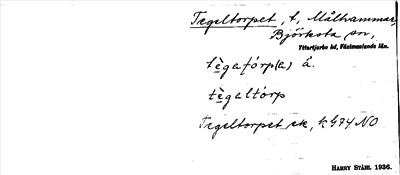 Tegeltorpet, t, Målhammar,
Björksta sn,
Yttertjurbo hd, Västmanlands län.
tègatórp(a) å.
tègeltòrp
Tegeltorpet ek, k G74 NO
HARRY STÅHL 1936.